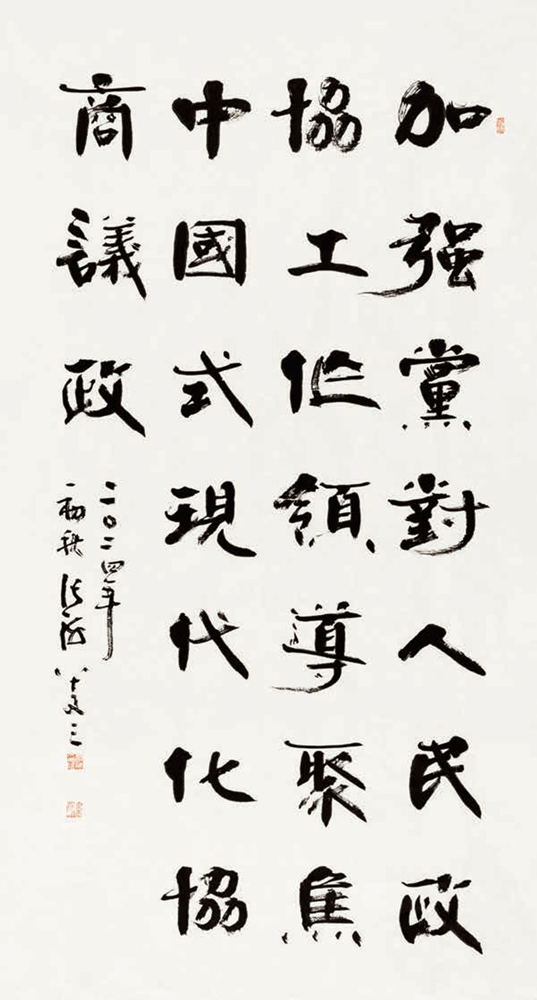 加强黨對人民政
協工作領導聚焦
中國式現代化協
商議政
二〇二四年
初秋
八十又三